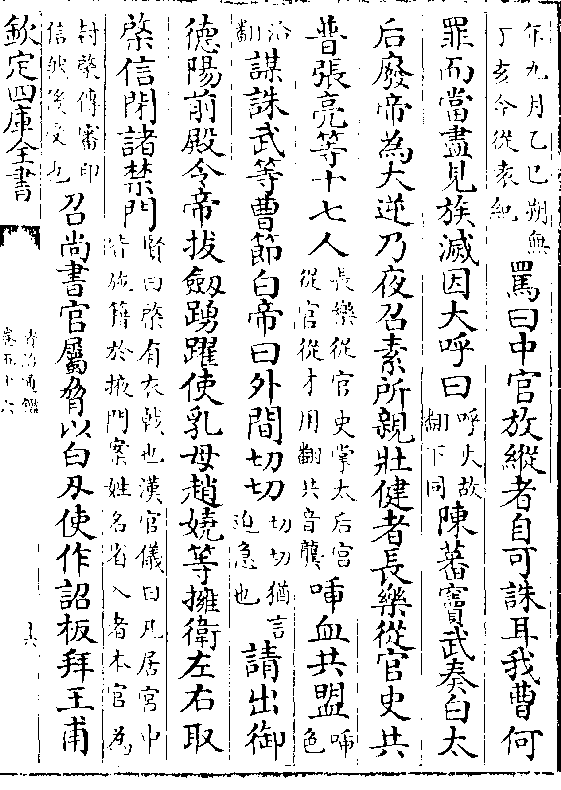 年九月乙巳朔無
丁亥今從袁紀
罵曰中官放縱者自可誅耳我曹何
罪而當盡見族滅因大呼曰
呼火故
翻下同
陳蕃竇武奏白太
后廢帝為大逆乃夜召素所親壯健者長樂從官史共
普張亮等十七人
長樂從官史掌太后宮
從官從才用翻共音龔
喢血共盟
喢色
洽
翻
謀誅武等曹節白帝曰外間切切
切切猶言
迫急也
請出御
德陽前殿令帝拔劒踴躍使乳母趙嬈等擁衛左右取
棨信閉諸禁門
賢曰棨有衣戟也漢官儀曰凡居宮中
皆施籍於掖門案姓名當入者本官為
封棨傳審印
信然後受也
召尚書官屬脅以白刃使作詔板拜王甫
欽定四庫全書
資治通鑑
卷五十六